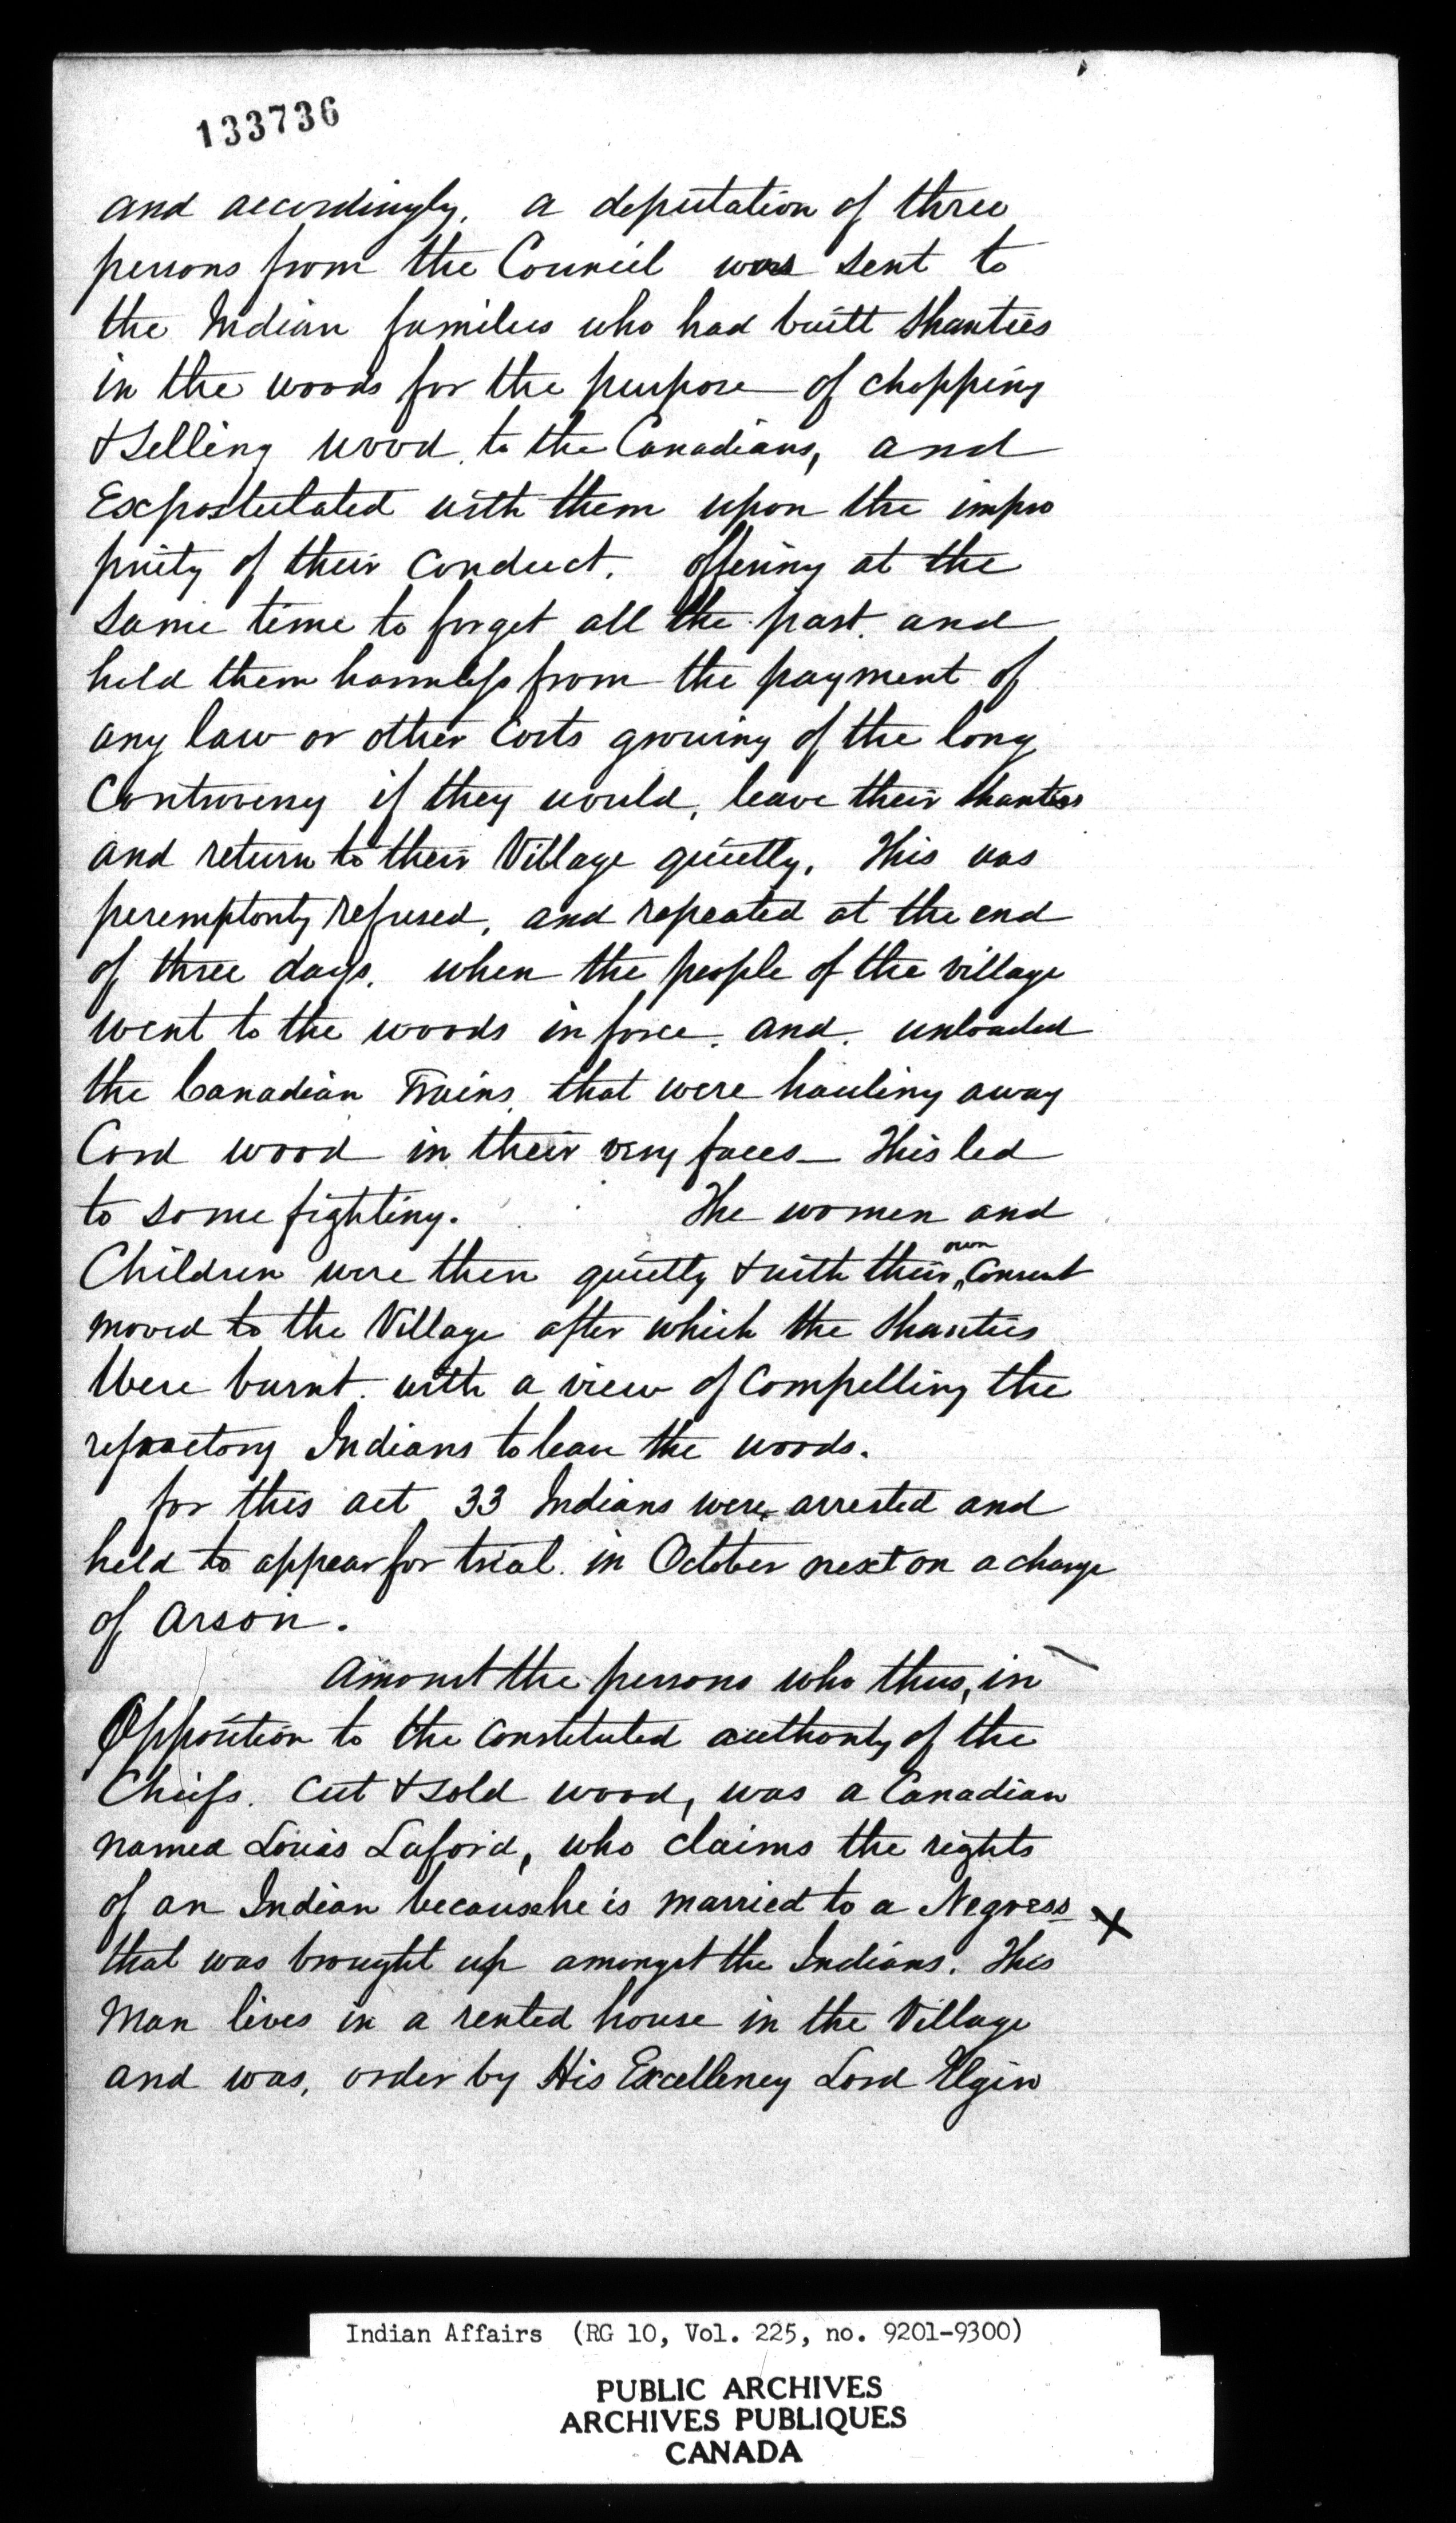 133736
and accordingly, a deputation of three
persons from the Council was sent to
the Indian families who had built shanties
in the woods for the purpose of chopping
& selling wood, to the Canadians, and
Expostulated with them upon the impro
priety of their conduct. offering at the
same time to forget all the past, and
hold them harmless from the payment of
any law or other costs growing of the long
Controversy if they would, leave their shanties
and return to their Village quietly. This was
peremptorily refused, and repeated at the end
of three days, when the people of the village
went to the woods in force, and, unloaded
the Canadian Trains, that were hauling away
Cord wood in their very faces — This led
to some fighting. The women and
Children were then quietly & with their own Consent
moved to the Village after which the shanties
Were burnt, with a view of Compelling the
refractory Indians to leave the woods.
for this act 33 Indians were arrested and
held to appear for trial, in October next on a charge
of Arson.
Amonst the persons who thus, in
Opposition to the constituted authority of the
Chiefs, cut & sold wood, was a Canadian
named Louis Laford, who claims the rights
of an Indian because he is married to a Negress X
that was brought up amongst the Indians. This
Man lives in a rented house in the Village
and was, order by His Excellency Lord Elgin
Indian Affairs (RG 10, Vol. 225, no. 9201-9300)
PUBLIC ARCHIVES
ARCHIVES PUBLIQUES
CANADA